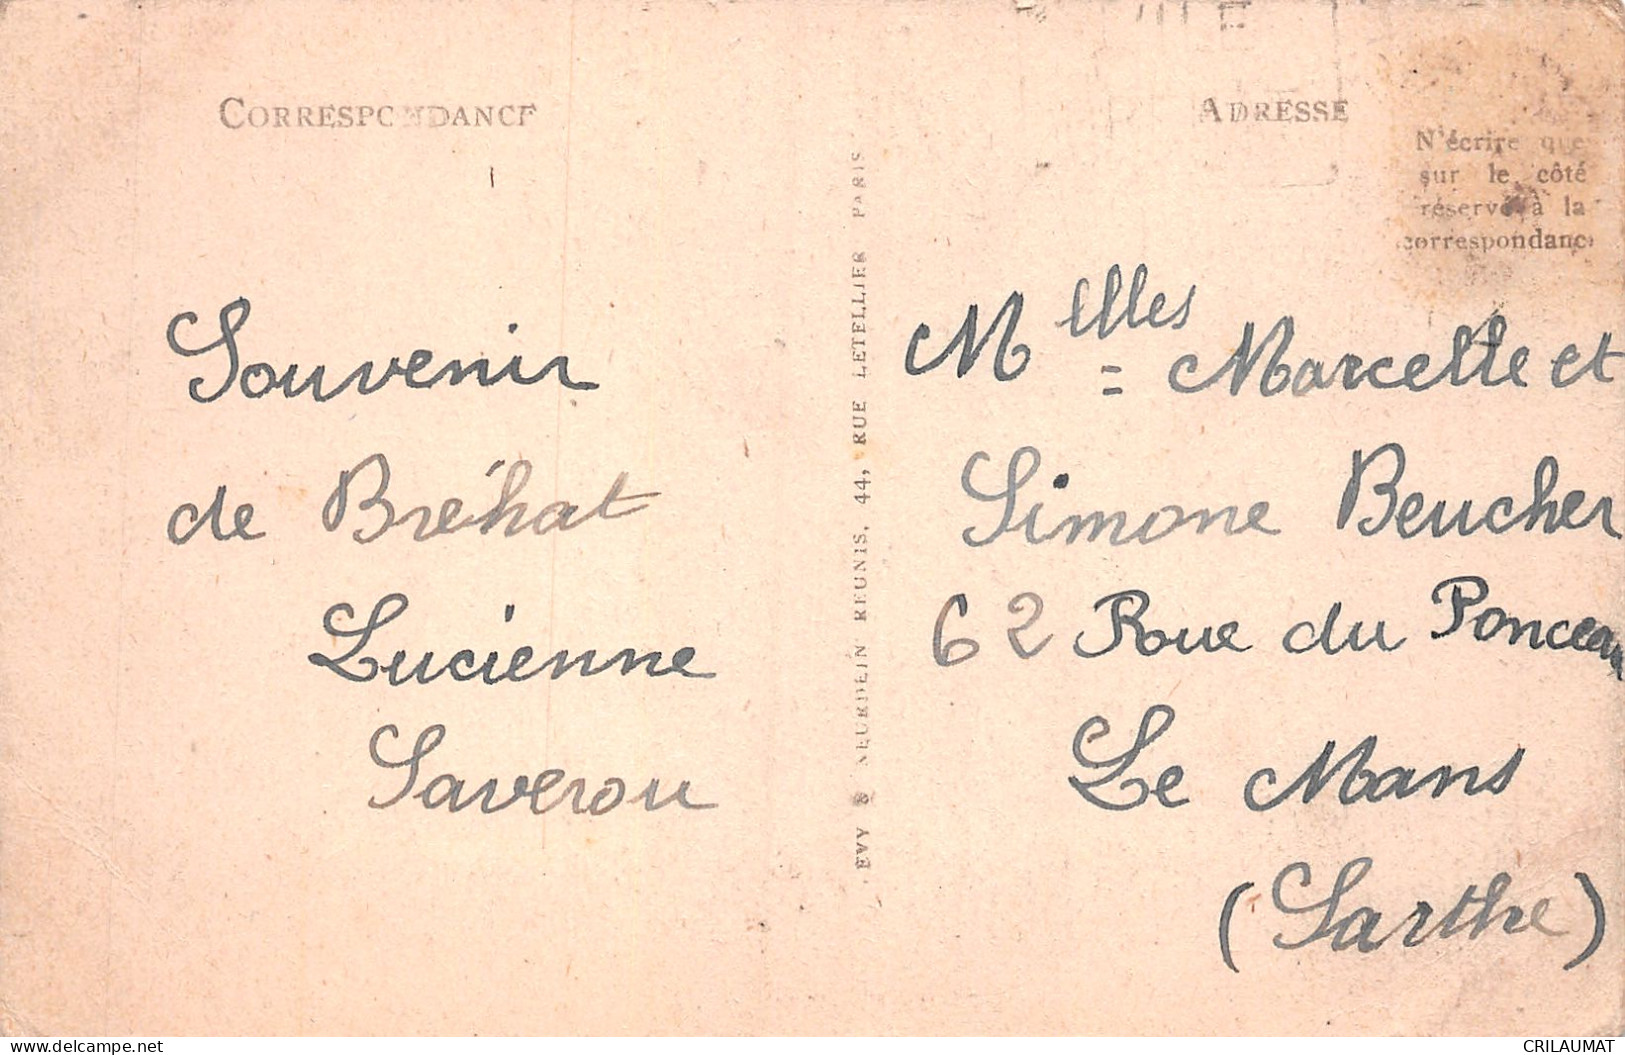 CORRESPONDANCE
Souvenir
de Bréhat
Lucienne
Saverou
EVY & NEURDEIN REUNIS, 44, RUE LETELLIER PARIS
ADRESSE
N'écrire que
sur le côté
réservé à la
correspondance
Melles Marcelle et
Simone Beucher
62 Rue du Ponceau
Le Mans
(Sarthe)
delcampe.net
CRILAUMAT